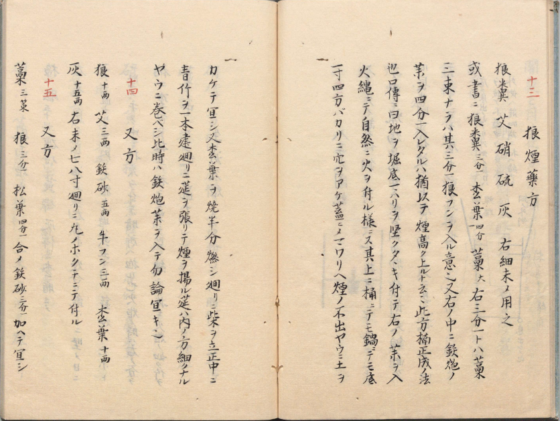 十三 狼煙薬方
狼糞 艾 硝 硫 灰 右細末メ用之
或書ニ狼糞三分一 杢葉四分一 藁大右三分一トハ藁
三束ナラハ其三分一狼フンヲ入ル意也又右ノ中ニ鉄炮ノ
薬ヲ四分一入レタルハ猶以テ煙高ク上ルト云此方楠正成ノ法
也口傳ニ曰地ヲ堀底一ハリヲ堅クタヽキ付テ右ノ薬ヲ入
火縄ニテ自然ニ火ヲ付ル様ニス其上ニ桶ニテモ鍋ニテモ底
一寸四方バカリニ穴ヲアケ蓋ニメマワリヘ煙ノ不出ヤウニ土ヲ
カケテ宜シ又杢葉ヲ焼半分燃シ廻リニ柴ヲ立正中ニ
青竹ヲ一本建廻リニ莚ヲ張リテ煙ヲ揚ル莚ハ内ノ方細クナル
ヤウニ巻ベシ此時ハ鉄炮薬ヲ入テ勿論宜キ也
十四 又方
狼十両 艾三両 鉄砂五両 牛フン三両 杢葉十両
灰十五両 右末ノ七八寸廻リニ丸メホクチニテ付ル
十五 又方
藁三束 狼三分一 松葉四分一 合メ鉄砂三分一加ハテ宜シ